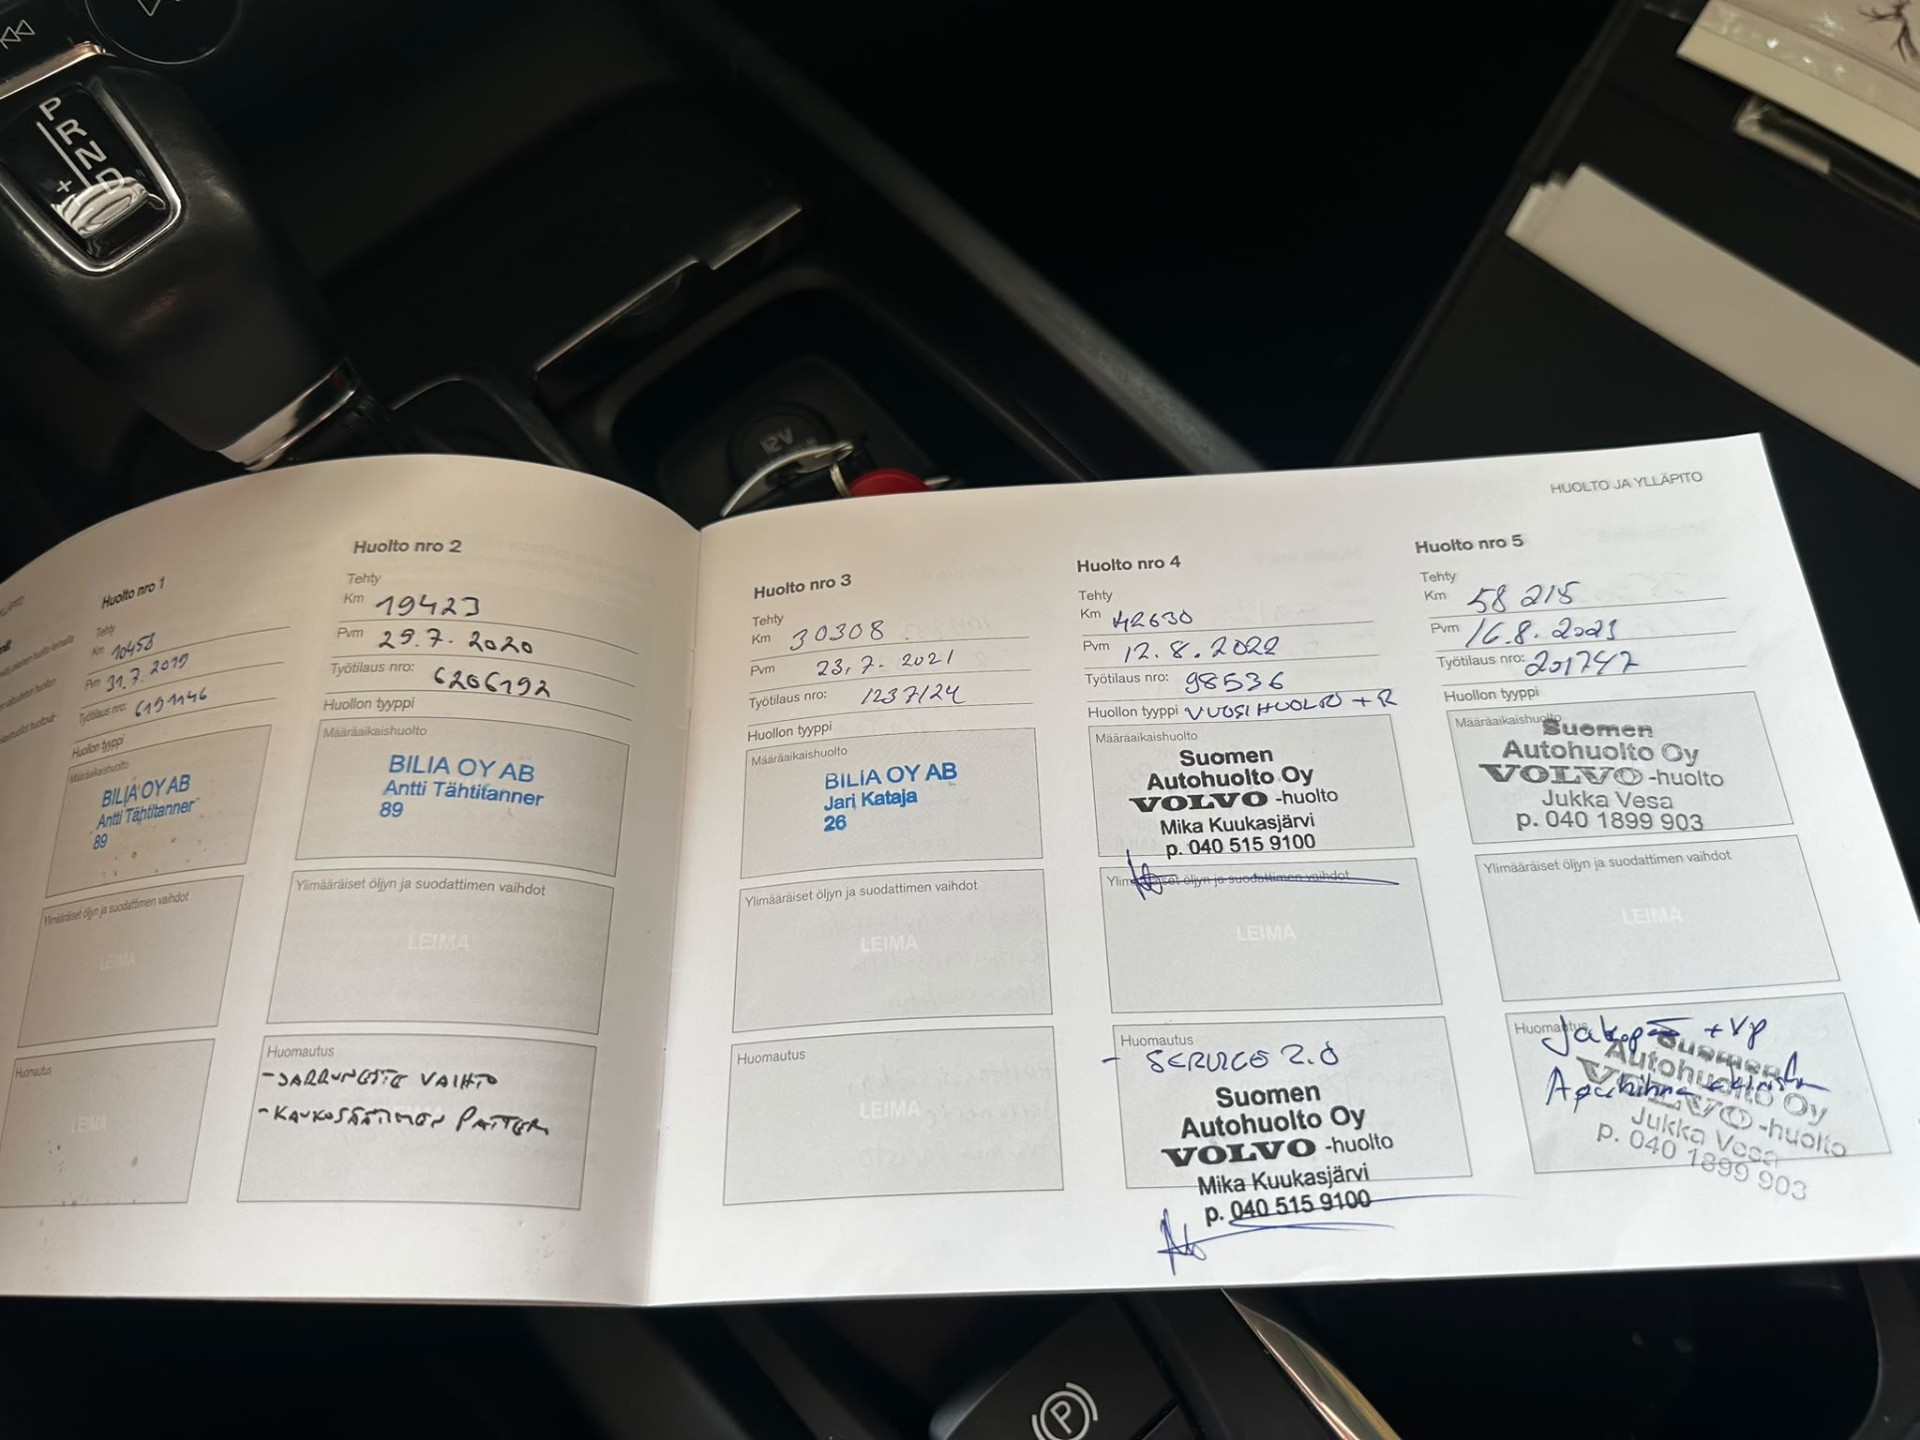 P
R
N
D
+
12V
HUOLTO JA YLLÄPITO
Huolto nro 1
Tehty
Km 10458
Pvm 31.7.2019
Työtilaus nro: 6191146
Huollon tyyppi
Määräaikaishuolto
BILIA OY AB
Antti Tähtitanner
89
Ylimääräiset öljyn ja suodattimen vaihdot
LEIMA
Huomautus
LEIMA
Huolto nro 2
Tehty
Km 19423
Pvm 29.7.2020
Työtilaus nro: 6206192
Huollon tyyppi
Määräaikaishuolto
BILIA OY AB
Antti Tähtitanner
89
Ylimääräiset öljyn ja suodattimen vaihdot
LEIMA
Huomautus
- JARRUNESTE VAIHTO
- KAUKOSÄÄTIMEN
Huolto nro 3
Tehty
Km 30308
Pvm 23.7.2021
Työtilaus nro: 1237124
Huollon tyyppi
Määräaikaishuolto
BILIA OY AB
Jari Kataja
26
Ylimääräiset öljyn ja suodattimen vaihdot
LEIMA
Huomautus
LEIMA
Huolto nro 4
Tehty
Km 42630
Pvm 12.8.2022
Työtilaus nro: 98536
Huollon tyyppi VUOSIHUOLTO + R
Määräaikaishuolto
Suomen
Autohuolto Oy
VOLVO -huolto
Mika Kuukasjärvi
p. 040 515 9100
Ylimääräiset öljyn ja suodattimen vaihdot
LEIMA
Huomautus
- SERVICE 2.0
Suomen
Autohuolto Oy
VOLVO -huolto
Mika Kuukasjärvi
p. 040 515 9100
Huolto nro 5
Tehty
Km 58 215
Pvm 16.8.2023
Työtilaus nro: 201747
Huollon tyyppi
Määräaikaishuolto
Suomen
Autohuolto Oy
VOLVO -huolto
Jukka Vesa
p. 040 1899 903
Ylimääräiset öljyn ja suodattimen vaihdot
LEIMA
Huomautus
Jakopää + VP
Apuhihna
Suomen
Autohuolto Oy
VOLVO -huolto
Jukka Vesa
p. 040 1899 903
P